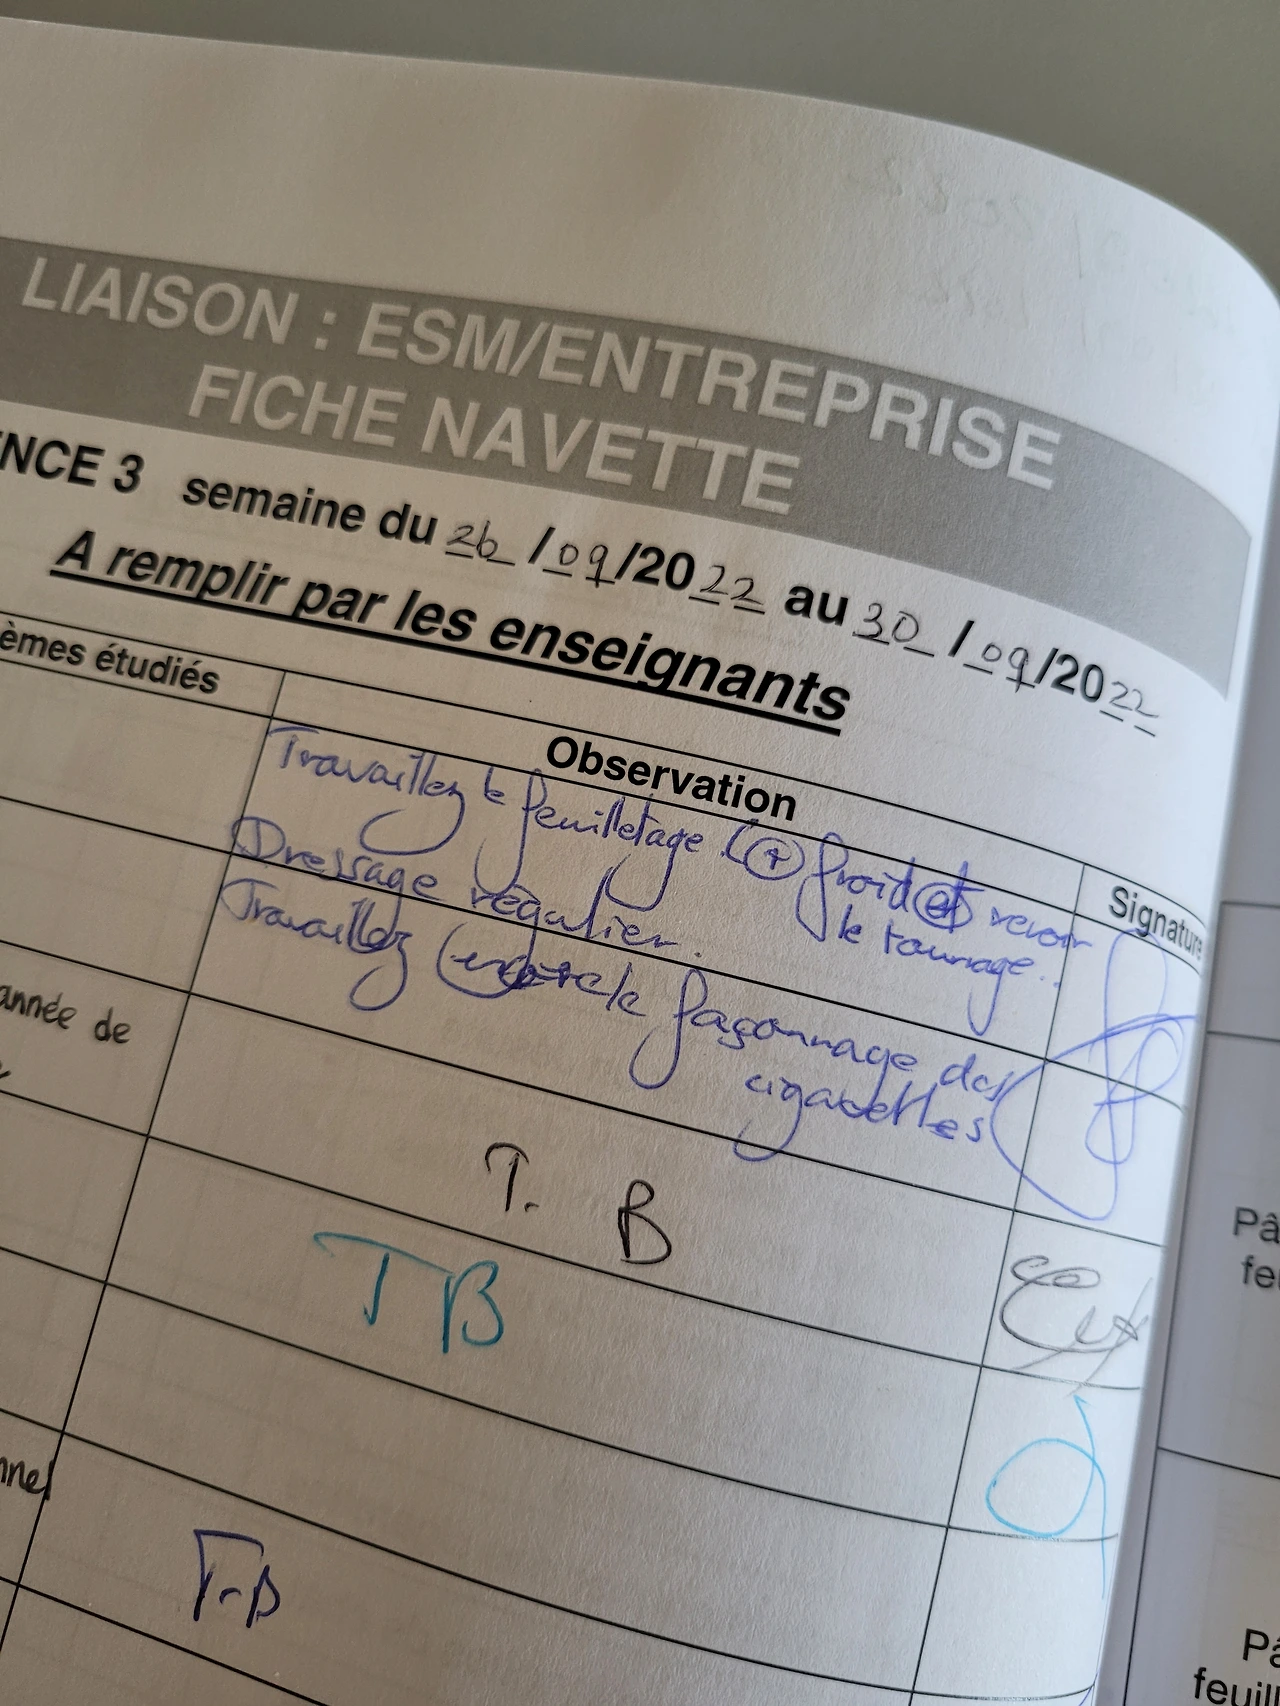 LIAISON : ESM/ENTREPRISE
FICHE NAVETTE
NCE 3 semaine du 26/09/2022 au 30/09/2022
A remplir par les enseignants
èmes étudiés
Observation
Signature
Travaillez le feuilletage (+) froid et revoir
le tourage.
Dressage régulier.
Travaillez encore le façonnage des
cigarettes
année de
T. B
TB
nnel
T-B
Pâ
feu
Pâ
feuil